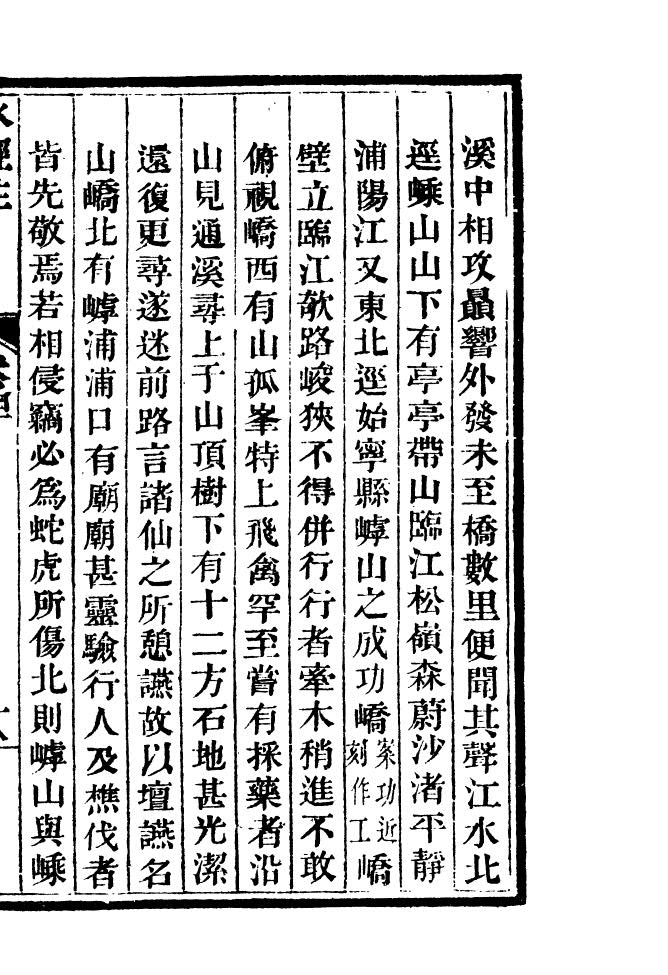 溪中相攻贔響外發未至橋數里便聞其聲江水北
逕嵊山山下有亭亭帶山臨江松嶺森蔚沙渚平靜
浦陽江又東北逕始寧縣嶀山之成功嶠案功近刻作工嶠
壁立臨江欹路峻狹不得併行行者牽木稍進不敢
俯視嶠西有山孤峯特上飛禽罕至嘗有採藥者沿
山見通溪尋上于山頂樹下有十二方石地甚光潔
還復更尋遂迷前路言諸仙之所憩讌故以壇讌名
山嶠北有嶀浦浦口有廟廟甚靈驗行人及樵伐者
皆先敬焉若相侵竊必為蛇虎所傷北則嶀山與嵊
水經注